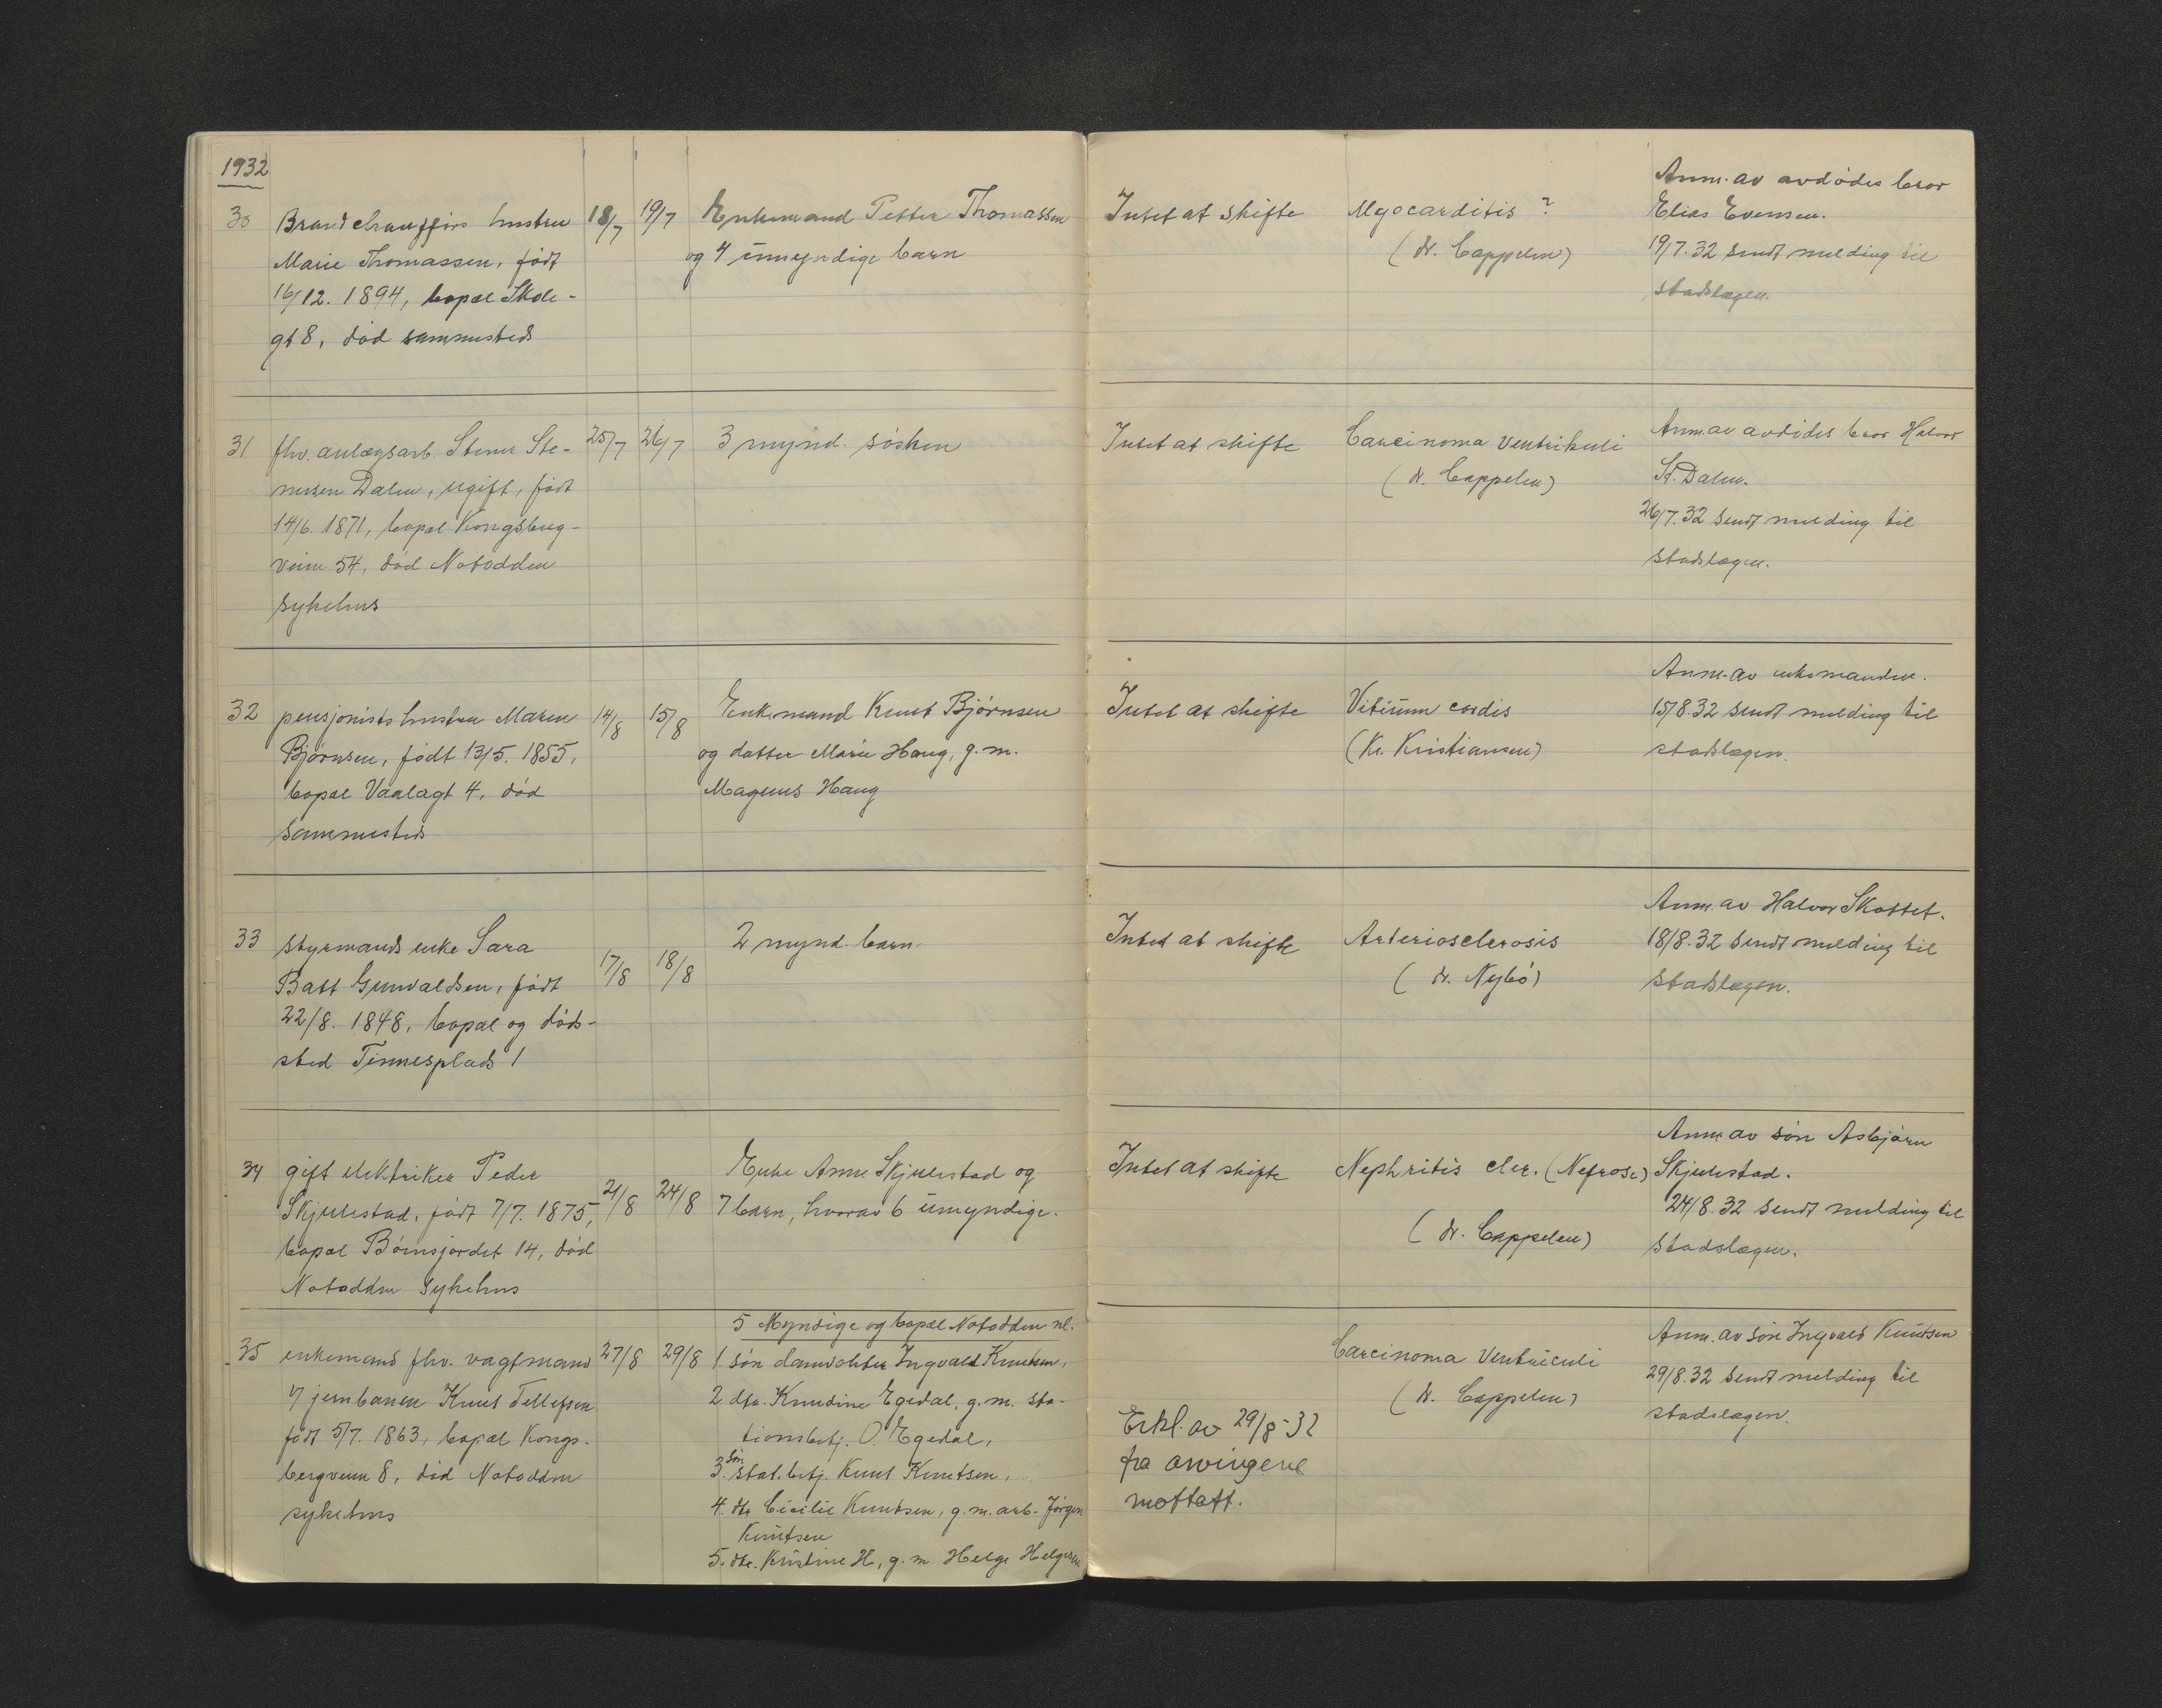 1932
30 Brandchaufførs hustru 18/7 19/7 Enkemand Petter Thomassen Intet at skifte Myocarditis ? Anm. av avdødes bror
Marie Thomassen, født og 4 umyndige barn (dr. Cappelen) Elias Evensen.
16/12. 1894, bopæl Skole- 19/7.32 sendt melding til
gt 8, død sammesteds stadslægen.
31 fhv. anlægsarb. Stener Ste- 25/7 26/7 3 mynd. søsken Intet at skifte Carcinoma Ventrikuli Anm. av avdødes bror Halvor
nersen Dalen, ugift, født (dr. Cappelen) St. Dalen.
14/6. 1871, bopæl Kongsberg- 26/7.32 sendt melding til
veien 54, død Notodden stadslægen.
sykehus
32 pensjonists hustru Maren 14/8 15/8 Enkemand Knut Bjørnsen Intet at skifte Vitium cordis Anm. av enkemanden.
Bjørnsen, født 13/5. 1855, og datter Marie Haug, g.m. (Kr. Kristiansen) 15/8.32 sendt melding til
bopæl Vaalagt 4, død Magnus Haug stadslægen.
sammesteds
33 styrmands enke Sara 17/8 18/8 2 mynd. barn Intet at skifte Arteriosclerosis Anm. av Halvor Skottet.
Batt Gunvaldsen, født (dr. Nybø) 18/8.32 sendt melding til
22/8. 1848, bopæl og døds- stadslægen.
sted Tinnesplads 1
34 gift elektriker Peder 21/8 24/8 Enke Anne Skjulestad og Intet at skifte Nephritis (Nefrose) Anm. av søn Asbjørn
Skjulestad, født 7/7. 1875, 7 barn, hvorav 6 umyndige. (dr. Cappelen) Skjulestad.
bopæl 14, død 24/8.32 sendt melding til
Notodden sykehus stadslægen.
5 Myndige og bopæl Notodden nl.
35 enkemand fhv. vagtmand 27/8 29/8 1 søn Ingvald Knutsen, Carcinoma Ventriculi Anm. av søn Ingvald Knutsen
v/ jernbanen Knut Tellefsen 2. dtr. Knudine Egedal, g.m. sta- (dr. Cappelen) 29/8.32 sendt melding til
født 5/7. 1863, bopæl Kongs- tionsbetj. O. Egedal, Erkl. av 29/8-32 stadslægen.
bergveien 8, død Notodden 3. søn stat.betj. Knut Knutsen, fra arvingene
sykehus 4. dtr Cicilie Knutsen, g.m. arb. Jørgen mottatt.
Knutsen
5. dtr. Kristine H, g.m Helge Helgesen